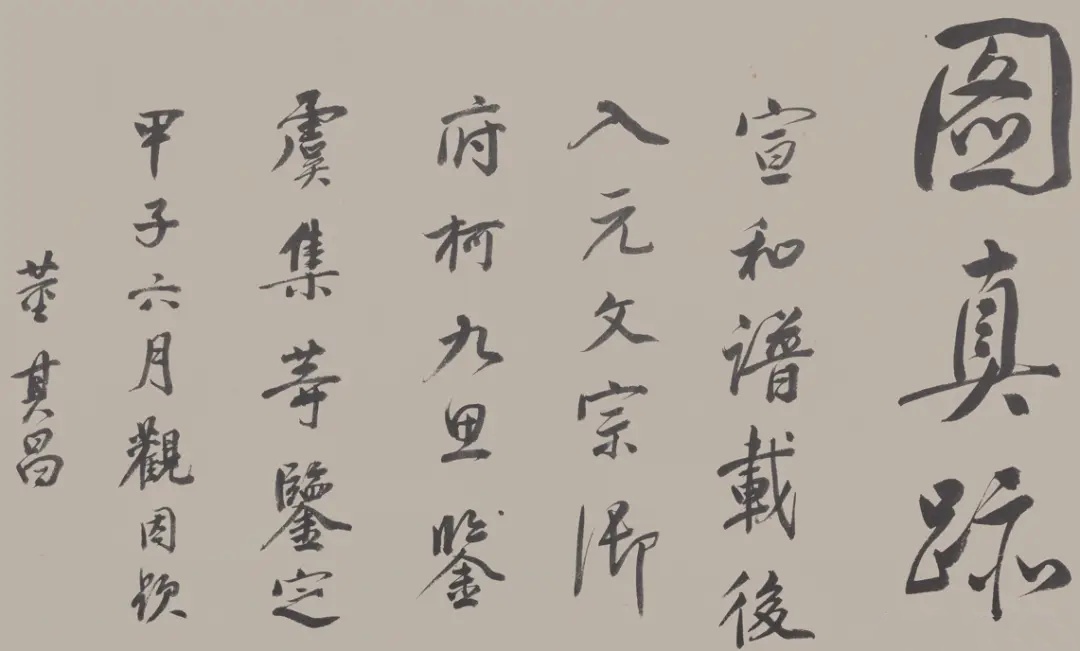 圖真跡
宣和譜載後
入元文宗御
府柯九思鑒
虞集等鑒定
甲子六月觀因題
董其昌